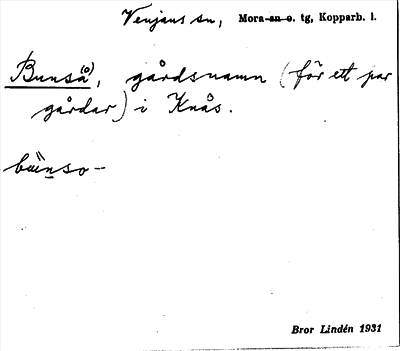 Venjans sn, Mora sn o. tg, Kopparb. l.
Bunså(o), gårdsnamn (för ett par
gårdar) i Knås.
bunso-
Bror Lindén 1931